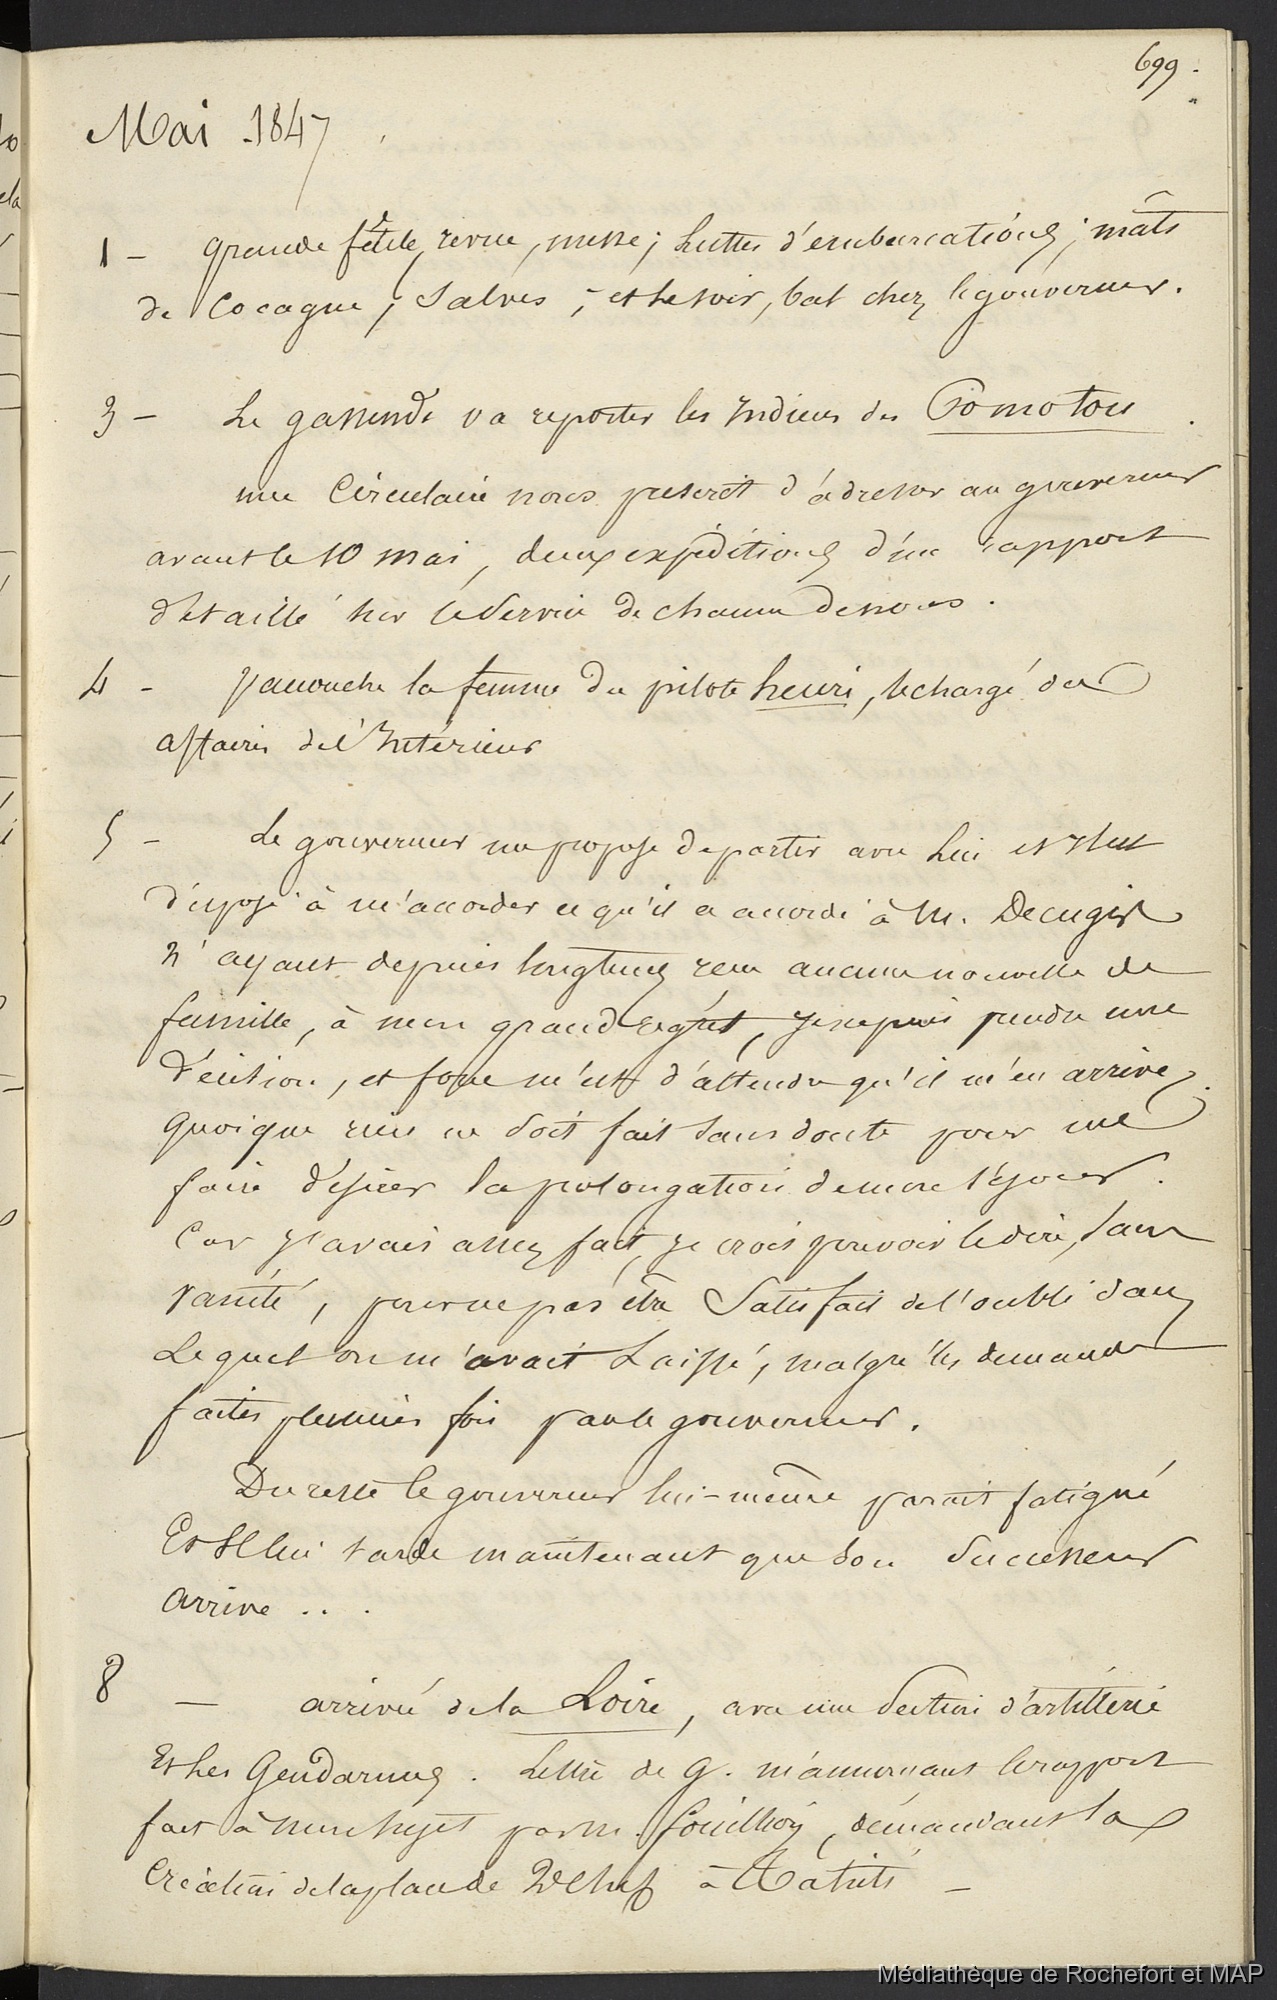 699.
Mai 1847
1 - grande fête, revue, messe; luttes d'embarcations; mâts
de Cocagne; Salves; et le soir, bal chez le gouverneur.
3 - Le gassendi va reporter les Indiens des Pomotou
une Circulaire nous prescrit d'adresser au gouverneur
avant le 10 mai, deux expéditions d'un rapport
détaillé sur le Service de chacun de nous.
4 - J'accouche la femme du pilote henri, le chargé des
affaires de l'Intérieur
5 - Le gouverneur me propose de partir avec lui et Il est
disposé à m'accorder ce qu'il a accordé à M. Decugis
N'ayant depuis longtems reçu aucune nouvelle de
famille, à mon grand regret, je ne puis prendre une
décision, et force m'est d'attendre qu'il m'en arrive,
quoique rien ne soit fait sans doute pour me
faire désirer la prolongation de mon séjour.
Car j'avais assez fait, je crois pouvoir le dire, sans
vanité, pour ne pas être Satisfait de l'oubli dans
Lequel on m'avait Laissé, malgré les demandes
faites plusieurs fois par le gouverneur.
Du reste le gouverneur lui-même paraît fatigué
Et Il lui tarde maintenant que son Successeur
arrive ...
8 - arrivée de la Loire, avec une Section d'artillerie
Et les Gendarmes. Lettre de G. m'annonçant le rapport
fait à mon sujet par M. fouilhoy, demandant la
Création de la place de 2d Chef à Taïti -
Médiathèque de Rochefort et MAP